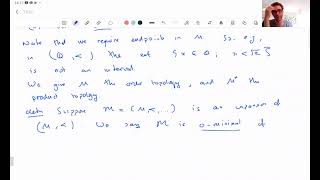 Note that we require endpoints in M. So e.g.
in (Q, <) the set {x ∈ Q : x < √2}
is not an interval.
We give M the order topology, and Mⁿ the
product topology.
defn Suppose M = (M, <, ...) is an expansion of
(M, <) We say M is o-minimal if